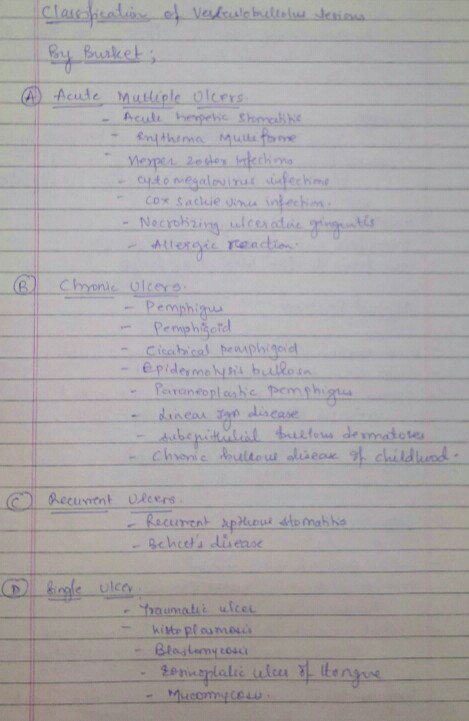 Classification of Vesiculobullous lesions
By Burket;
(A) Acute Multiple Ulcers
- Acute herpetic stomatitis
- Erythema Multiforme
- Herpes zoster infections
- Cytomegalovirus infections
- Cox sackie virus infection.
- Necrotizing ulcerative gingivitis
- Allergic reaction.
(B) Chronic Ulcers.
- Pemphigus
- Pemphigoid
- Cicatrical pemphigoid
- Epidermolysis bullosa
- Paraneoplastic pemphigus
- Linear IgA disease
- Subepithelial bullous dermatoses
- Chronic bullous disease of childhood.
(C) Recurrent Ulcers.
- Recurrent apthous stomatitis
- Behcet's disease
(D) Single Ulcer.
- Traumatic ulcer
- histoplasmosis
- Blastomycosis
- ulcer of tongue
- Mucomycosis.